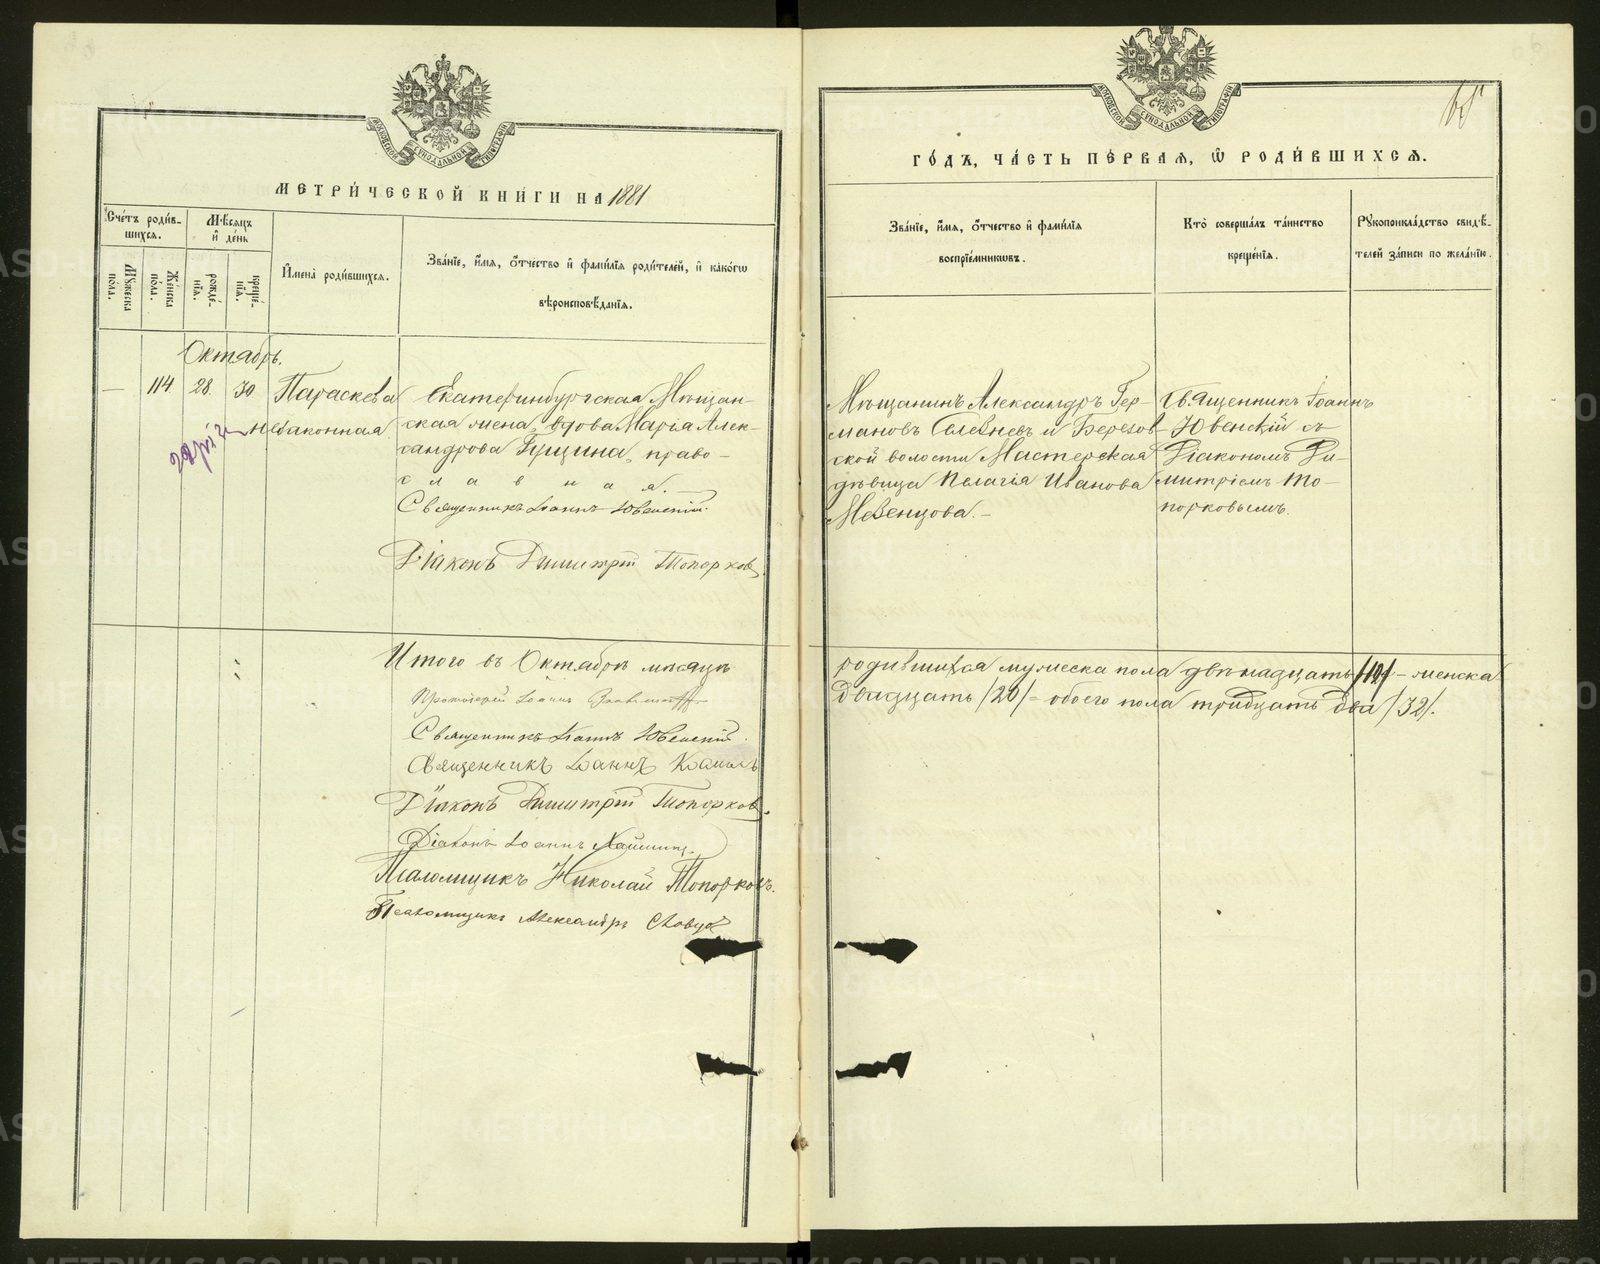 МОСКОВСКОЙ СѴНОДАЛЬНОЙ ТИПОГРАФІИ
МЕТРИ́ЧЕСКОЙ КНИ́ГИ НА 1881
Сче́тъ роди́в-
шихся.
Мѣ́сяцъ
и҆ де́нь
Му́жеска
по́ла.
Же́нска
по́ла.
рожде́-
нїя.
креще́-
нїя.
И҆мена̀ роди́вшихся.
Зва́нїе, и҆́мя, ѻ҆́тчество и҆ фами́лїя роди́телей, и҆ како́гѡ
вѣроисповѣ́данїя.
Октябрь.
— 114 28. 30 Параскева
незаконная
Екатеринбургская Мѣщан-
ская жена, вдова Марья Алек-
сандрова Гущина, право-
славная.
Священникъ Іоаннъ Ювенскій.
Діаконъ Димитрій Топорковъ.
Итого въ Октябрѣ мѣсяцѣ
Протоіерей Іоаннъ
Священникъ Іоаннъ Ювенскій.
Священникъ Іоаннъ
Діаконъ Димитрій Топорковъ.
Діаконъ Іоаннъ
Псаломщикъ Николай Топорковъ.
Псаломщикъ Александръ
МОСКОВСКОЙ СѴНОДАЛЬНОЙ ТИПОГРАФІИ
ГО́ДЪ, ЧА́СТЬ ПЕ́РВАЯ, Ѡ҆ РОДИ́ВШИХСЯ.
Зва́нїе, и҆́мя, ѻ҆́тчество и҆ фами́лїя
воспрїе́мникѡвъ.
Кто̀ соверша́лъ та́инство
креще́нїя.
Рꙋкоприкла́дство свидѣ́-
телей за́писи по жела́нїю.
Мѣщанинъ Александръ Гер-
мановъ Селезневъ и Березов-
ской волости Мастерская
дѣвица Пелагія Иванова
Мезенцова.-
Священникъ Іоаннъ
Ювенскій съ
Діакономъ Ди-
митріемъ То-
порковымъ.
родившихся мужеска пола двѣнадцать /12/ - женска
двадцать /20/ - обоего пола тридцать два /32/.
METRIKI.GASO-URAL.RU